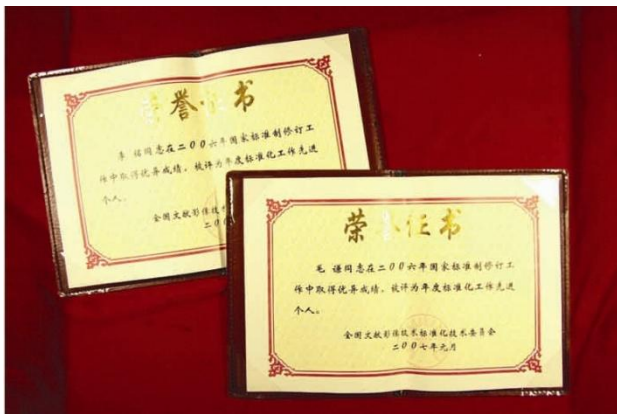 荣誉证书
李 同志在二00六年国家标准制修订工
作中取得优异成绩，被评为年度标准化工作先进
个人。
全国文献影像技术
二00
荣誉证书
毛 谦同志在二00六年国家标准制修订工
作中取得优异成绩，被评为年度标准化工作先进
个人。
全国文献影像技术标准化技术委员会
二00七年元月